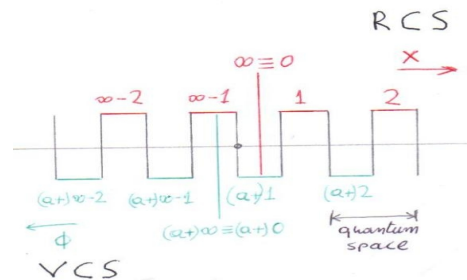 RCS
∞≡0
X
∞-2 ∞-1 1 2
(a+)∞-2 (a+)∞-1 (a+)1 (a+)2
(a+)∞≡(a+)0
ϕ
quantum
space
VCS